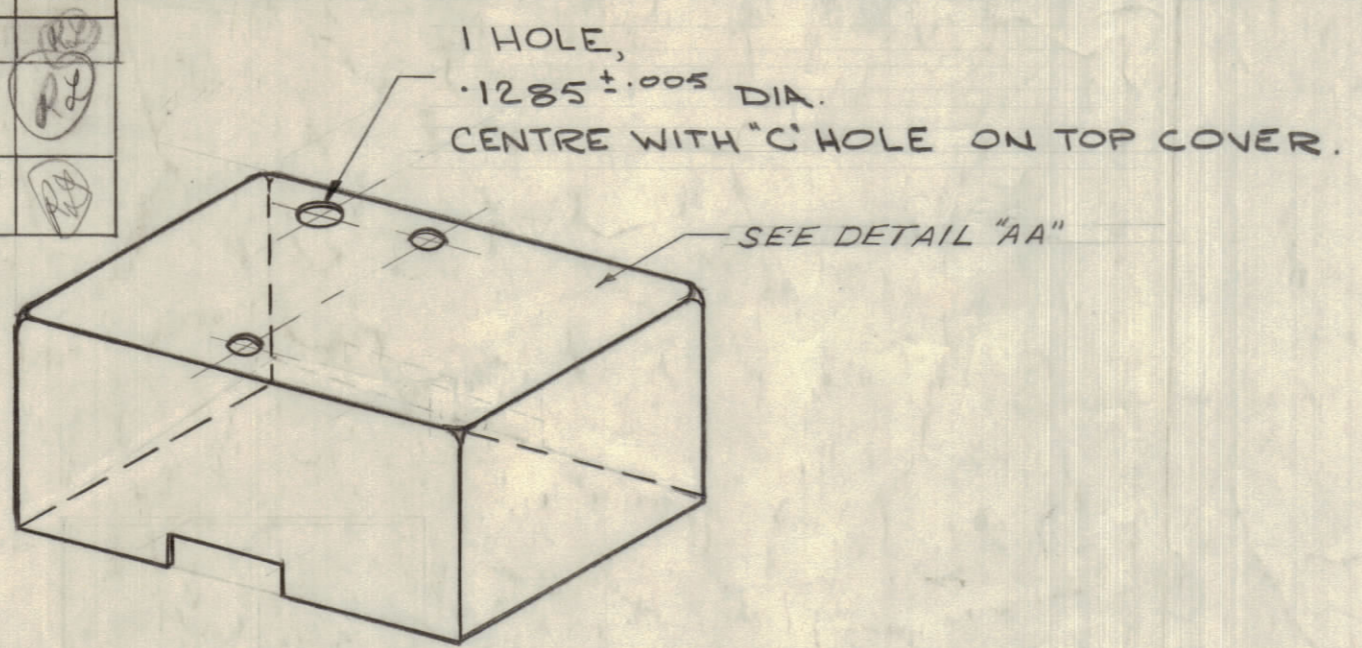 1 HOLE,
.1285 ± .005 DIA.
CENTRE WITH "C" HOLE ON TOP COVER.
SEE DETAIL "AA"